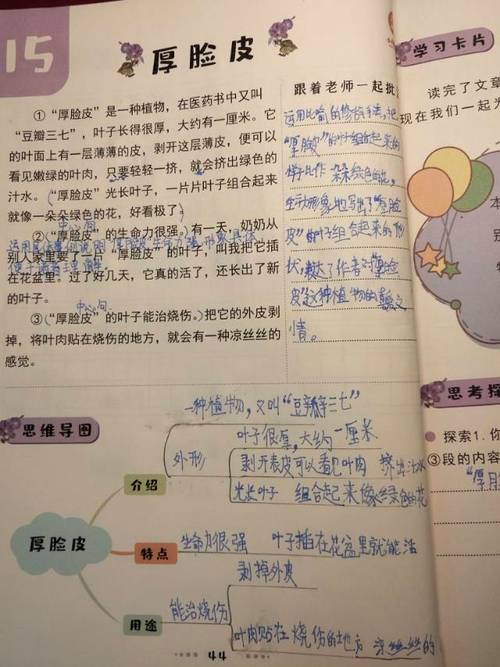 15
厚脸皮
①“厚脸皮”是一种植物，在医药书中又叫
“豆瓣三七”，叶子长得很厚，大约有一厘米。它
的叶面上有一层薄薄的皮，剥开这层薄皮，便可以
看见嫩绿的叶肉，只要轻轻一挤，就会挤出绿色的
汁水。（“厚脸皮”光长叶子，一片片叶子组合起来
就像一朵朵绿色的花，好看极了）
中心句
②（“厚脸皮”的生命力很强。）有一天，奶奶从
别人家里要了一片“厚脸皮”的叶子，叫我把它插
在花盆里。过了好几天，它真的活了，还长出了新
的叶子。
中心句
③（“厚脸皮”的叶子能治烧伤。）把它的外皮剥
掉，将叶肉贴在烧伤的地方，就会有一种凉丝丝的
感觉。
跟着老师一起批
运用比喻的修辞手法，把
“厚脸皮”的叶子组合起来的
样子比作 朵朵绿色的花，
生动形象地写出了“厚脸
皮”的叶子组合起来的形
状，表达了作者对厚脸
皮这种植物的喜爱之
情。
学习卡片
读完了文章
现在我们一起为
思考探
探索1.你
③段的内容
思维导图
一种植物，又叫“豆瓣三七”
叶子很厚，大约一厘米
外形
剥开表皮可以看见叶肉 挤出汁水
光长叶子 组合起来像绿色的花
介绍
厚脸皮
特点
生命力很强 叶子插在花盆里就能活
剥掉外皮
能治烧伤
用途
叶肉贴在烧伤的地方 凉丝丝的
44